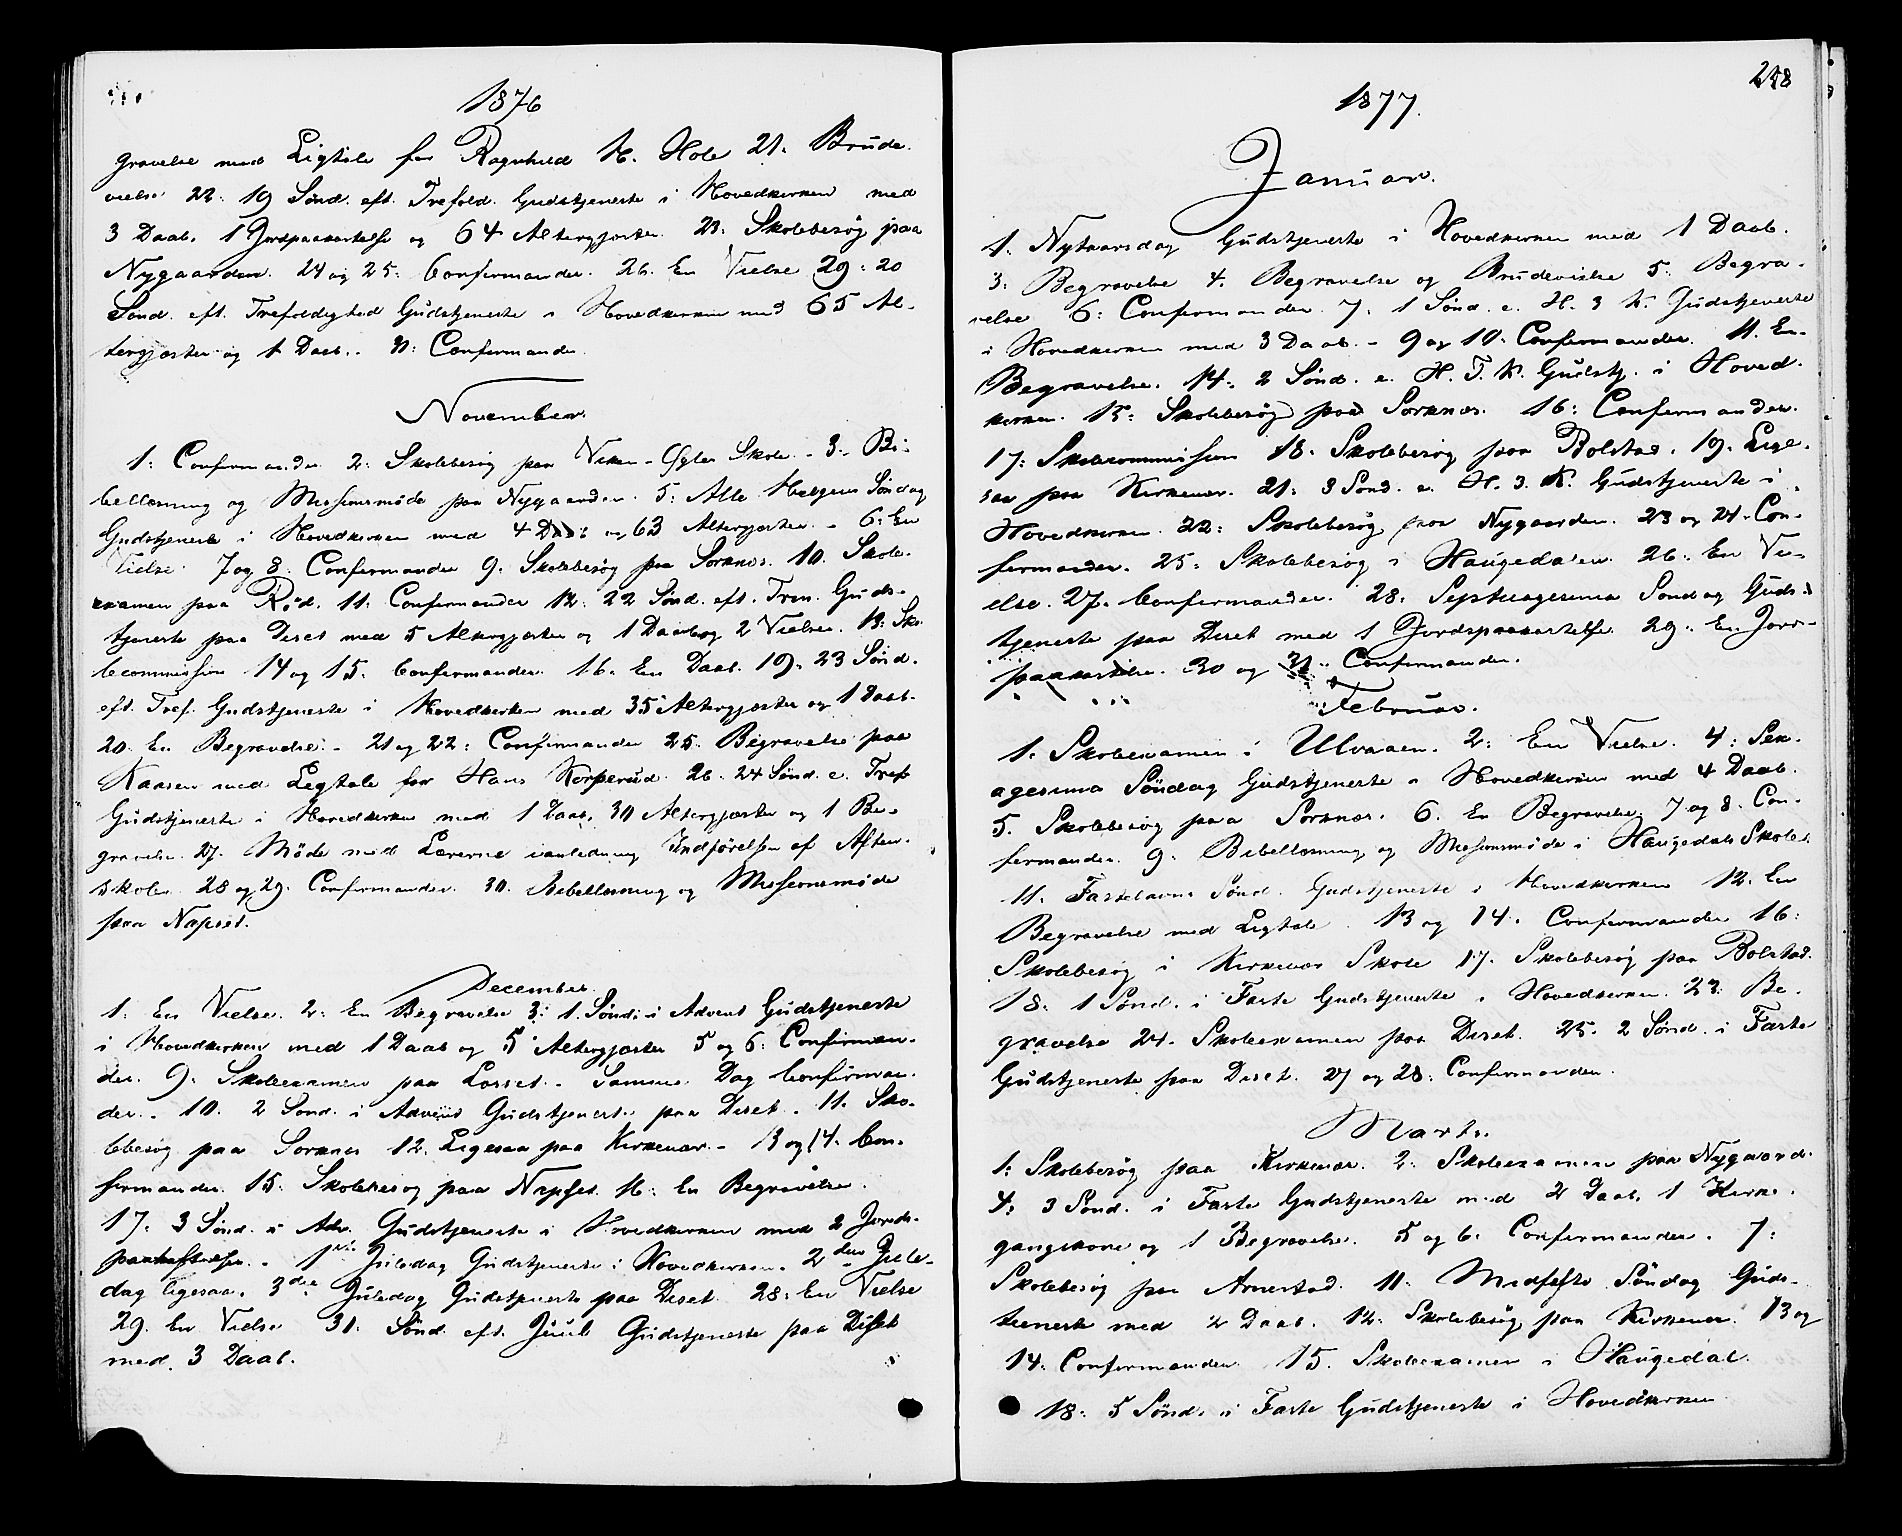 1876
gravelse med Ligtale for Ragnhild H. Hole 21. Brude-
vielse 22: 19 Sønd. eft. Trefold. Gudstjeneste i Hovedkirken med
3 Daab. 1 Jordpaakastelse og 64 Altergjæster. 23: Skolebesøg paa
Nygaarden. 24 og 25: Confirmander. 26. En Vielse 29: 20
Sønd. eft. Trefoldighed Gudstjeneste i Hovedkirken med 65 Al-
tergjæster og 1 Daab. 31: Confirmander.
November.
1: Confirmander 2: Skolebesøg paa Viken-Øgle Skole. 3. Bi-
bellæsning og Missionsmöde paa Nygaarden. 5: Alle Helgens Søndag
Gudstjeneste i Hovedkirken med 4 Daab og 63 Altergjæster. 6: En
Vielse. 7 og 8. Confirmander 9. Skolebesøg paa Sorknes. 10. Skole-
examen paa Rød. 11. Confirmander 12: 22 Sønd. eft. Tren. Guds-
tjeneste paa Deset med 5 Altergjæster og 1 Daab og 2 Vielser. 13. Sko-
lecommission 14 og 15. Confirmander. 16. En Daab. 19: 23 Sønd.
eft. Tref. Gudstjeneste i Hovedkirken med 35 Altergjæster og 1 Daab.
20. En Begravelse. 21 og 22: Confirmander 25. Begravelse paa
Kaasen med Ligtale for Hans Korperud. 26. 24 Sønd. e. Tref
Gudstjeneste i Hovedkirken med 1 Daab, 30 Altergjæster og 1 Be-
gravelse. 27. Möde med Lærerne i anledning Indförelsen af Aften-
skoler 28 og 29. Confirmander. 30. Bibellæsning og Missionsmöde
paa Napset.
December.
1. En Vielse. 2. En Begravelse 3: 1. Sönd. i Advent Gudstjeneste
i Hovedkirken med 1 Daab og 5 Altergjæster 5 og 6. Confirman-
der. 9. Skoleexamen paa Losset. Samme Dag Confirman-
der. 10. 2 Sönd. i Advent Gudstjeneste paa Deset. 11. Sko-
lebesøg paa Sorknes 12. Ligesaa paa Kirkenær. 13 og 14. Con-
firmander. 15. Skolebesøg paa Napset. 16. En Begravelse.
17. 3 Sönd. i Adv. Gudstjeneste i Hovedkirken med 2 Jords-
paakastelser. 1ste Juledag Gudstjeneste i Hovedkirken. 2den Jule-
dag ligesaa. 3die Juledag Gudstjeneste paa Deset. 28: En Vielse
29. En Vielse 31. Sönd. eft. Juul Gudstjeneste paa Deset
med 3 Daab.
1877.
Januar.
1. Nytaarsdag Gudstjeneste i Hovedkirken med 1 Daab.
3: Begravelse 4. Begravelse og Brudevielse 5. Begra-
velse 6: Confirmander. 7. 1 Sönd. e. H. 3 K. Gudstjeneste
i Hovedkirken med 3 Daab. 9 og 10. Confirmander. 11. En
Begravelse. 14: 2 Sönd. e. H. T. K. Gudstj. i Hoved-
kirken. 15: Skolebesøg paa Sorknes. 16: Confirmander.
17: Skolecommission 18. Skolebesøg paa Bolstad. 19. Lige-
saa paa Kirkenær. 21: 3 Sönd. e. H. 3. K. Gudstjeneste i
Hovedkirken. 22: Skolebesøg paa Nygaarden. 23 og 24. Con-
firmander. 25: Skolebesøg i Haugedalen. 26. En Vi-
else. 27. Confirmander. 28. Septuagesima Sondag Guds-
tjeneste paa Deset med 1 Jordspaakastelse. 29. En Jord-
paakastelse. 30 og 31. Confirmander.
Februar.
1. Skoleexamen i Ulvaaen. 2: En Vielse. 4: Sex-
agesima Söndag Gudstjeneste i Hovedkirken med 4 Daab.
5. Skolebesøg paa Sorknes. 6. En Begravelse. 7 og 8. Con-
firmander. 9. Bibellæsning og Missionsmöde i Haugedals Skole.
11. Fastelavns Sönd. Gudstjeneste i Hovedkirken 12. En
Begravelse med Ligtale. 13 og 14. Confirmander 16:
Skolebesøg i Kirkenær Skole 17. Skolebesøg paa Bolstad.
18. 1 Sönd. i Faste Gudstjeneste i Hovedkirken. 23. Be-
gravelse 24. Skoleexamen paa Deset. 25. 2 Sönd. i Faste
Gudstjeneste paa Deset. 27 og 28. Confirmander.
Marts.
1: Skolebesøg paa Kirkenær. 2. Skoleexamen paa Nygaard.
4: 3 Sönd. i Faste Gudstjeneste med 2 Daab. 1 Kirke-
gangskone og 1 Begravelse. 5 og 6. Confirmander. 7:
Skolebesøg paa Arnestad. 11. Midfaste Söndag Guds-
tieneste med 2 Daab. 12. Skolebesøg paa Kirkenær. 13 og
14. Confirmander 15. Skoleexamen i Haugedal.
18. 5 Sönd. i Faste Gudstjeneste i Hovedkirken